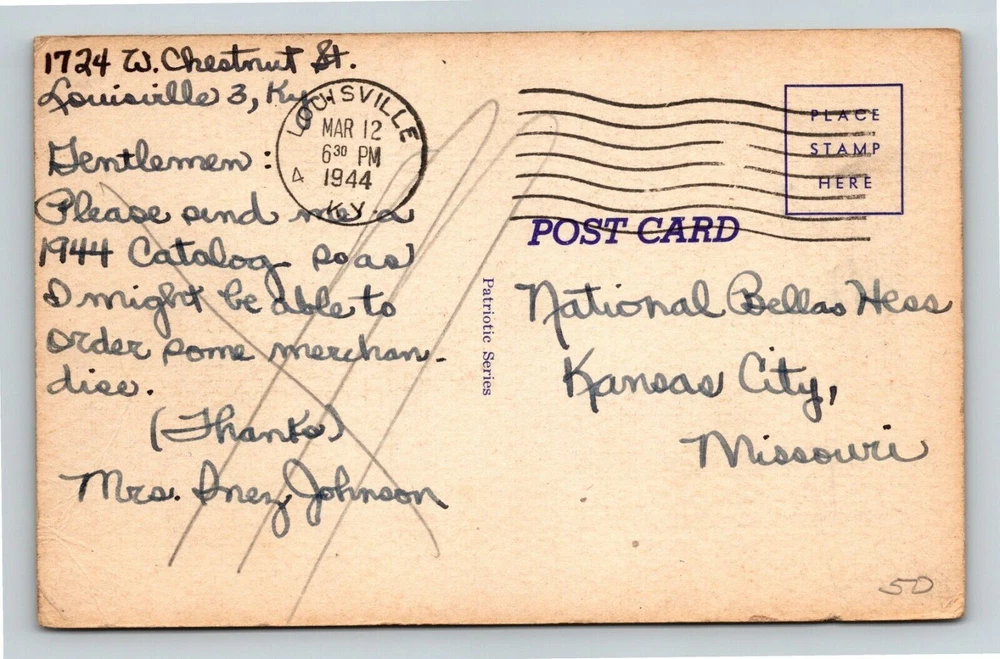 1724 W. Chestnut St.
Louisville 3, Ky.
Gentlemen:
Please send me a
1944 Catalog so as
I might be able to
order some merchan-
dise.
(Thanks)
Mrs. Inez Johnson
LOUISVILLE
MAR 12
630 PM
1944
KY.
4
PLACE
STAMP
HERE
POST CARD
Patriotic Series
National Bellas Hess
Kansas City,
Missouri
50